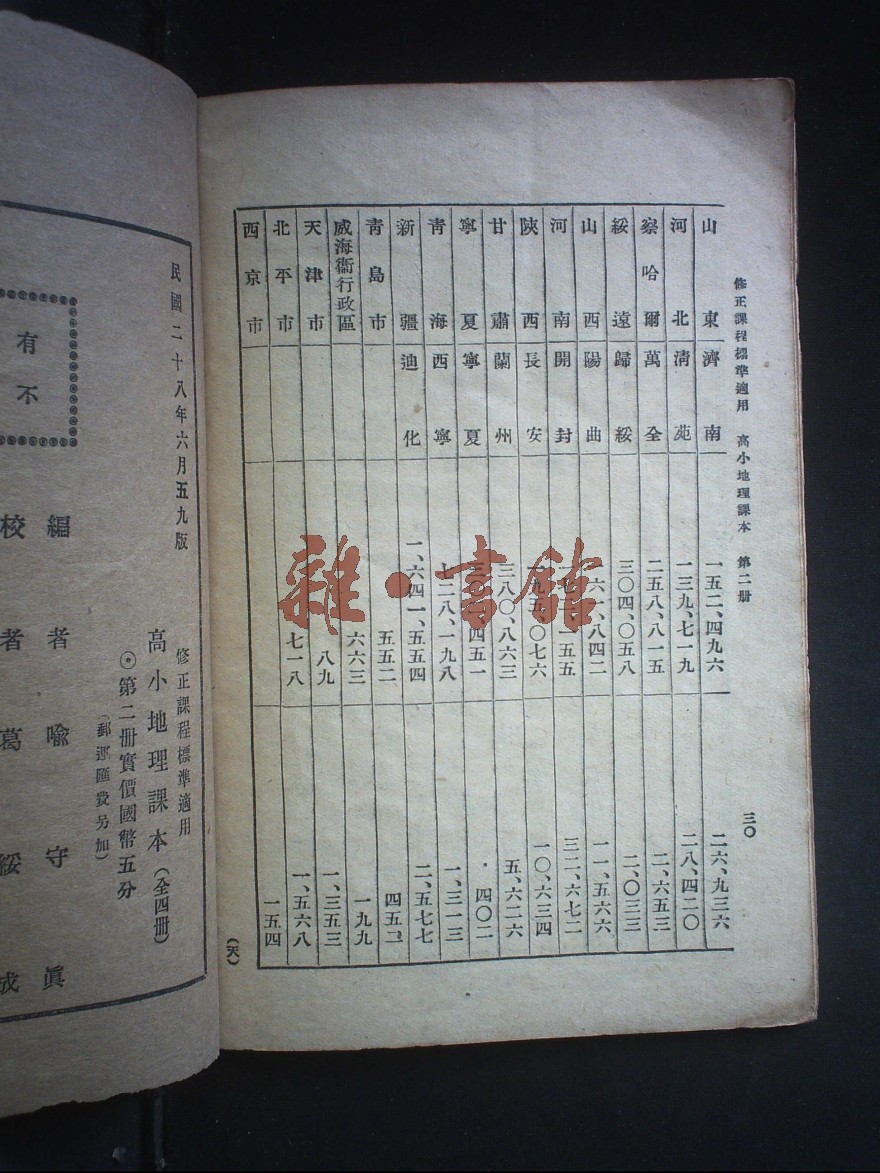 修正課程標準適用 高小地理課本 第二册
三〇
山東 濟南 一五二、四九六 二六、九三六
河北 清苑 一三九、七一九 二八、四二〇
察哈爾 萬全 二五八、八一五 二、六五三
綏遠 歸綏 三〇四、〇五八 二、〇三三
山西 陽曲 一六一、八四二 一一、五六六
河南 開封 一七二、一五五 三二、六七二
陝西 長安 一九五、〇七六 一〇、六三四
甘肅 蘭州 三八〇、八六三 五、六二六
寧夏 寧夏 三〇二、四五一 四〇二
青海 西寧 七二八、一九八 一、三一三
新疆 迪化 一、六四一、五五四 二、五七七
青島市 五五二 四五二
威海衞行政區 六六三 一九九
天津市 八九 一、三五三
北平市 七一八 一、五六八
西京市 一五四
(天)
雜·書館
有不
民國二十八年六月五九版
修正課程標準適用
高小地理課本(全四册)
⊙第二册實價國幣五分
(郵運匯費另加)
編者 喩守眞
校者 葛綏成